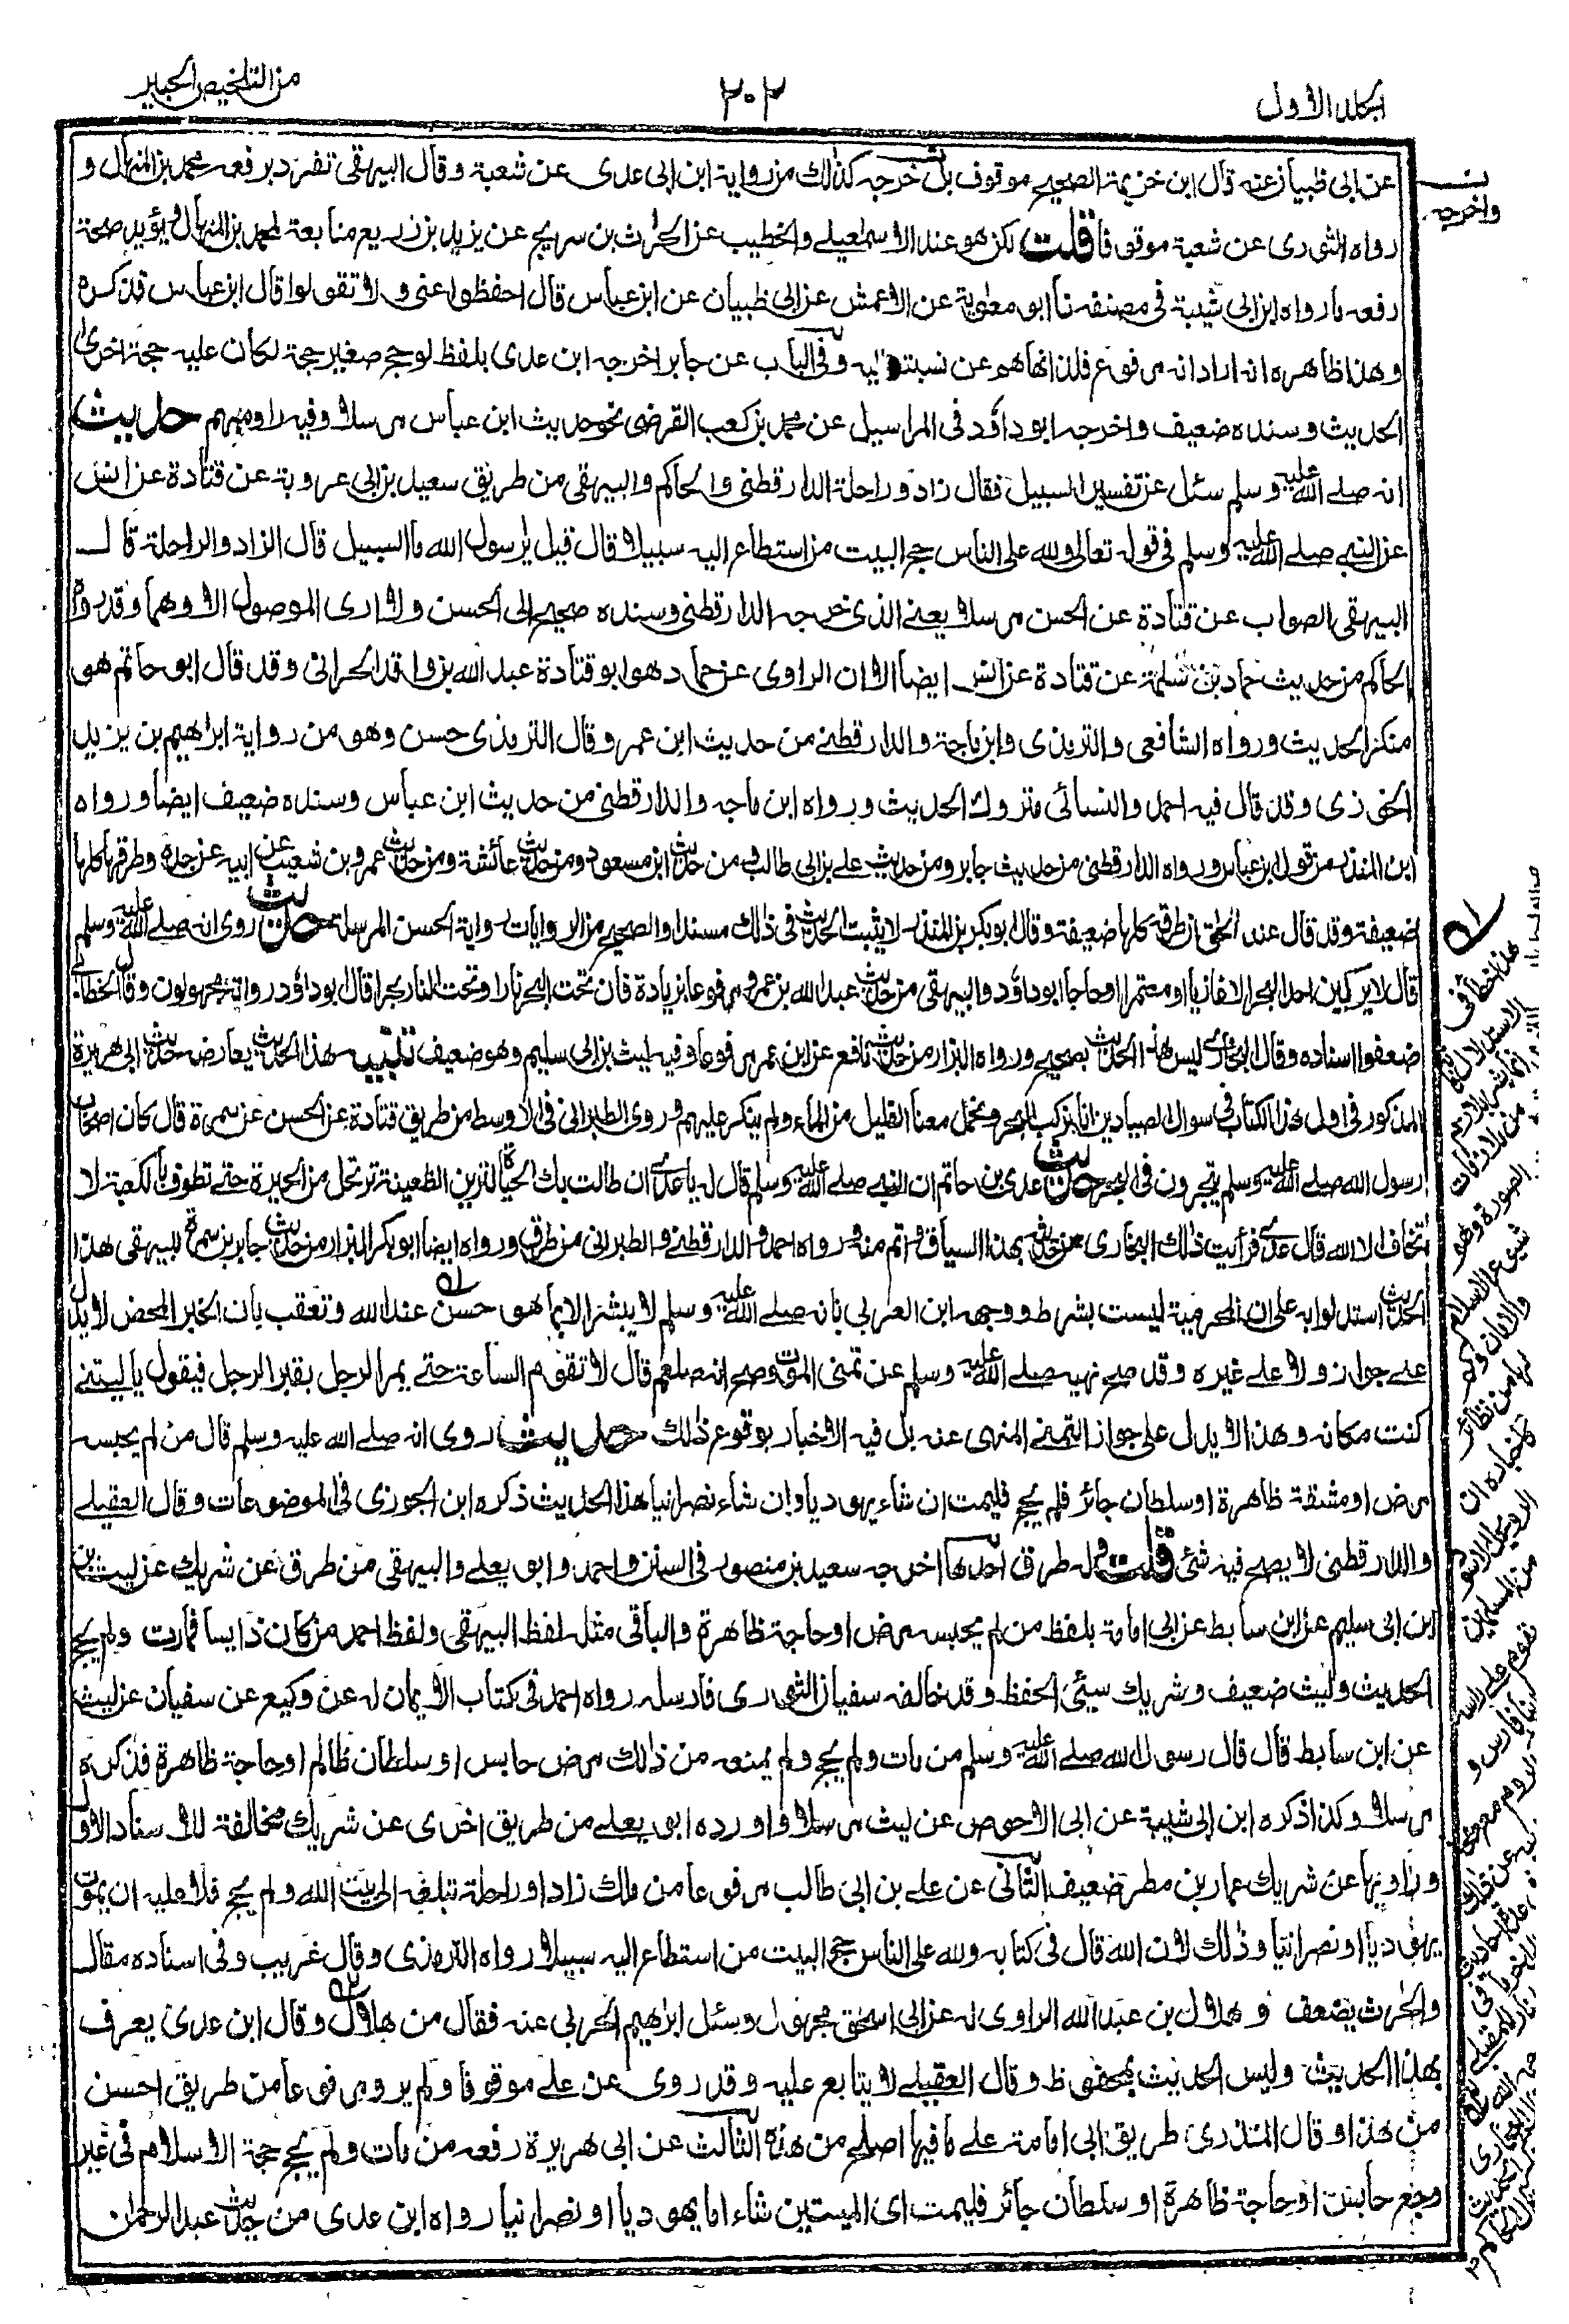 المجلد الاول
٢٠٢
من التلخيص الحبير
عن ابى ظبيان عنه قال ابن خزيمة الصحيح موقوف بل خرجه كذلك من رواية ابن ابى عدى عن شعبة وقال البيهقى تفرد برفعه محمد بن المنهال و
رواه الثورى عن شعبة موقوفا قلت لكن هو عند الاسمعيلے والخطيب عن الحرث بن سريج عن يزيد بن زريع متابعة لمحمد بن المنهال ويؤيد صحة
رفعه ما رواه ابن ابى شيبة فى مصنفه نا ابو معوية عن الاعمش عن ابى ظبيان عن ابن عباس قال احفظوا عنى ولا تقولوا قال ابن عباس فذكره
وهذا ظاهره انه اراد انه مرفوع فلذا نهاهم عن نسبته اليه وفى الباب عن جابر اخرجه ابن عدى بلفظ لو حج صغير حجة لكان عليه حجة اخرى
الحديث وسنده ضعيف واخرجه ابو داؤد فى المراسيل عن محمد بن كعب القرضى نحو حديث ابن عباس مرسلا وفيه راو مبهم حديث
انه صلے الله عليه وسلم سئل عن تفسير السبيل فقال زاد وراحلة الدارقطنى والحاكم والبيهقى من طريق سعيد بن ابى عروبة عن قتادة عن انس
عن النبى صلے الله عليه وسلم فى قوله تعالى ولله على الناس حج البيت من استطاع اليه سبيلا قال قيل يا رسول الله ما السبيل قال الزاد والراحلة قال
البيهقى الصواب عن قتادة عن الحسن مرسلا يعنے الذى خرجه الدارقطنى وسنده صحيح الى الحسن ولا ارى الموصول الا وهما وقد رواه
الحاكم من حديث حماد بن سلمة عن قتادة عن انس ايضا الا ان الراوى عن حماد هو ابو قتادة عبد الله بن واقد الحرانى وقد قال ابو حاتم هو
منكر الحديث ورواه الشافعى والترمذى وابن ماجة والدارقطنے من حديث ابن عمر وقال الترمذى حسن وهو من رواية ابراهيم بن يزيد
الخوزى وقد قال فيه احمد والنسائى متروك الحديث ورواه ابن ماجه والدارقطنى من حديث ابن عباس وسنده ضعيف ايضا ورواه
ابن المنذر من قول ابن عباس ورواه الدارقطنى من حديث جابر ومن حديث علے بن ابى طالب ومن حديث ابن مسعود ومن حديث عائشة ومن حديث عمرو بن شعيب عن ابيه عن جده وطرقها كلها
ضعيفة وقد قال عبد الحق ان طرقه كلها ضعيفة وقال ابو بكر بن المنذر لا يثبت الحديث فى ذلك مسندا والصحيح من الروايات رواية الحسن المرسلة حديث روى انه صلے الله عليه وسلم
قال لا يركبن احد البحر الا غازيا او معتمرا او حاجا ابو داؤد والبيهقى من حديث عبد الله بن عمرو مرفوعا بزيادة فان تحت البحر نارا وتحت النار بحرا قال ابو داؤد رواته مجهولون وقال الخطابى
ضعفوا اسناده وقال البخارى ليس هذا الحديث بصحيح ورواه البزار من حديث نافع عن ابن عمر مرفوعا وفيه ليث بن ابى سليم وهو ضعيف تنبيه هذا الحديث يعارضه حديث ابى هريرة
المذكور فى اول هذا الكتاب فى سوال الصيادين انا نركب البحر ونحمل معنا القليل من الماء ولم ينكر عليهم وروى الطبرانى فى الاوسط من طريق قتادة عن الحسن عن سمرة قال كان اصحاب
رسول الله صلے الله عليه وسلم يتجرون فى البحر حديث عدى بن حاتم ان النبى صلے الله عليه وسلم قال له يا عدى ان طالت بك الحياة لترين الظعينة ترتحل من الحيرة حتے تطوف بالكعبة لا
تخاف الا الله قال عدى فرأيت ذلك البخارى من حديثه بهذا السياق واتم منه ورواه احمد والدارقطنے والطبرانى من طرق ورواه ايضا ابو بكر البزار من حديث جابر بن سمرة للبيهقى هذا
الحديث استدلوا به على ان المحرمية ليست بشرط ووجهه ابن العربى بانه صلے الله عليه وسلم لا يبشر الا بما هو حسن عند الله وتعقب بان الخبر المحض لا يدل
علے جواز ولا علے غيره وقد صح نهيه صلے الله عليه وسلم عن تمنى الموت وصح انه صلعم قال لا تقوم الساعة حتے يمر الرجل بقبر الرجل فيقول يا ليتنے
كنت مكانه وهذا لا يدل على جواز التمنے المنهى عنه بل فيه الاخبار بوقوع ذلك حديث روى انه صلے الله عليه وسلم قال من لم يحبسه
مرض او مشقة ظاهرة او سلطان جائر فلم يحج فليمت ان شاء يهوديا وان شاء نصرانيا هذا الحديث ذكره ابن الجوزى فى الموضوعات وقال العقيلے
والدارقطنى لا يصح فيه شئ قلت وله طرق احدها اخرجه سعيد بن منصور فى السنن واحمد وابو يعلے والبيهقى من طرق عن شريك عن ليث بن
ابن ابى سليم عن ابن سابط عن ابى امامة بلفظ من لم يحبسه مرض او حاجة ظاهرة والباقى مثله لفظ البيهقى ولفظ احمد من كان ذا يسار فمات ولم يحج
الحديث وليث ضعيف وشريك سيئ الحفظ وقد خالفه سفيان الثورى فارسله رواه احمد فى كتاب الايمان له عن وكيع عن سفيان عن ليث
عن ابن سابط قال قال رسول الله صلے الله عليه وسلم من مات ولم يحج ولم يمنعه من ذلك مرض حابس او سلطان ظالم او حاجة ظاهرة فذكره
مرسلا وكذا ذكره ابن ابى شيبة عن ابى الاحوص عن ليث مرسلا واورده ابو يعلے من طريق اخرى عن شريك مخالفة للاسناد الاول
وراويها عن شريك عمار بن مطر ضعيف الثانى عن علے بن ابى طالب مرفوعا من ملك زادا وراحلة تبلغه الى بيت الله ولم يحج فلا عليه ان يموت
يهوديا او نصرانيا وذلك لان الله قال فى كتابه ولله على الناس حج البيت من استطاع اليه سبيلا رواه الترمذى وقال غريب وفى اسناده مقال
والحرث يضعف و هلال بن عبد الله الراوى له عن ابى اسحق مجهول وسئل ابراهيم الحربى عنه فقال من هلال وقال ابن عدى يعرف
بهذا الحديث وليس الحديث بمحفوظ وقال العقيلے لا يتابع عليه وقد روى عن علے موقوفا ولم يرو مرفوعا من طريق احسن
من هذا وقال المنذرى طريق ابى امامة علے ما فيها اصلح من هذه الثالث عن ابى هريرة رفعه من مات ولم يحج حجة الاسلام فى غير
وجع حابس او حاجة ظاهرة او سلطان جائر فليمت اى الميتتين شاء اما يهوديا او نصرانيا رواه ابن عدى من حديث عبد الرحمان
واخرجه